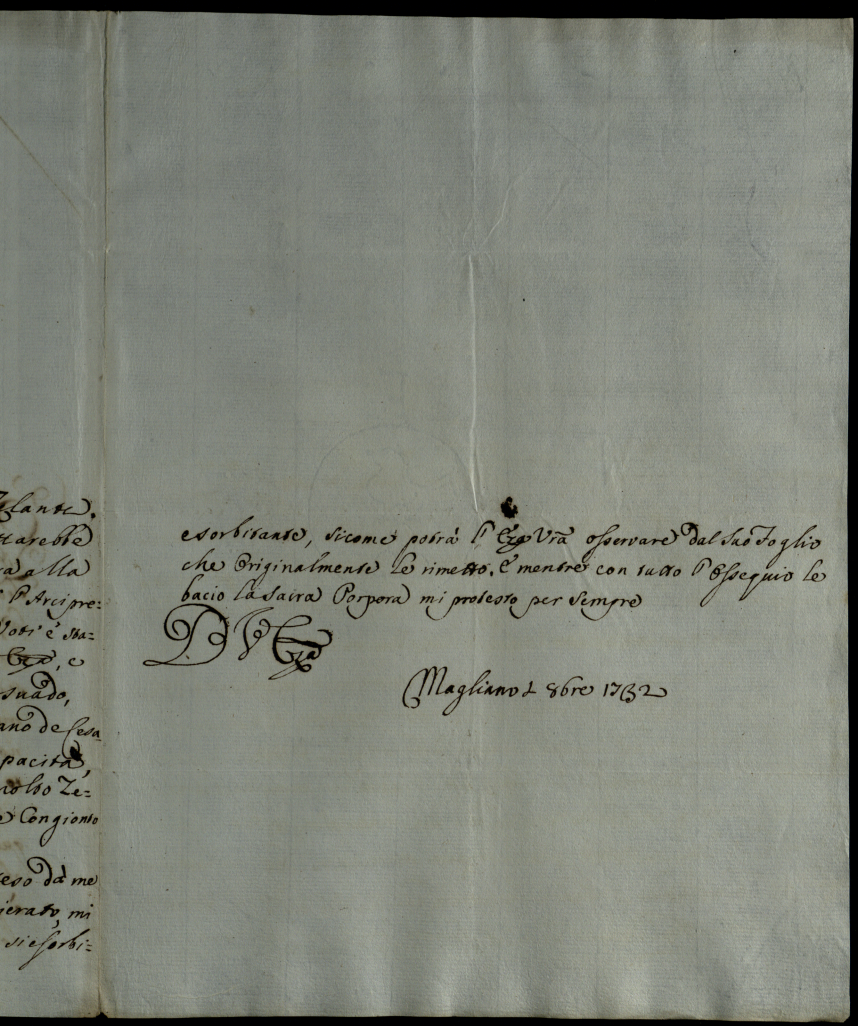 Zelante.
tarebbe
ra alla
l'Arcipre=
Voti è sta=
Eza, e
suado,
ano de Cesa
pacità,
molto Ze=
e Congionto
teso dà me
ierato, mi
si esorbi=
esorbitante, sicome potrà l'Eza Vrã osservare dal suo Foglio
che Originalmente Le rimetto. E mentre con tutto l'Ossequio le
bacio la Sacra Porpora mi protesto per sempre
D V Eza
Magliano 8bre 1732